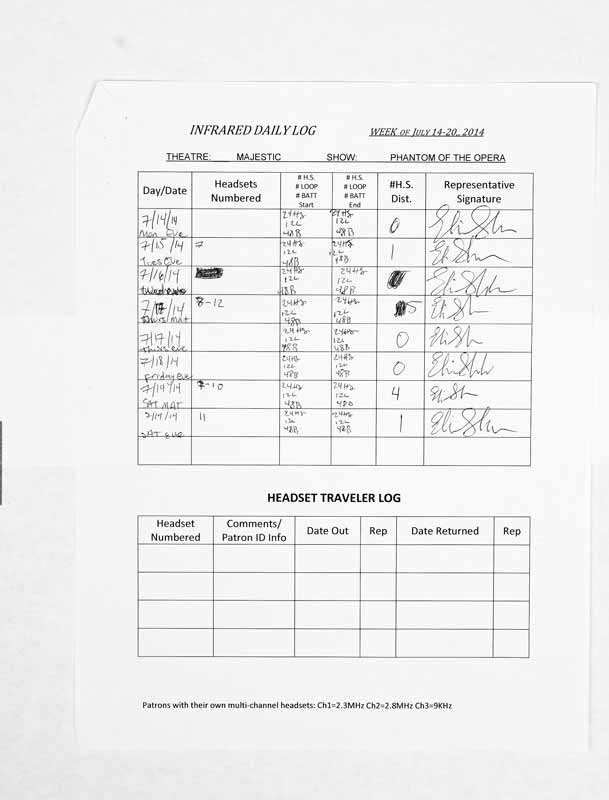 INFRARED DAILY LOG WEEK OF JULY 14-20, 2014
THEATRE: MAJESTIC SHOW: PHANTOM OF THE OPERA
Day/Date Headsets Numbered # H.S. # LOOP # BATT Start # H.S. # LOOP # BATT End #H.S. Dist. Representative Signature
7/14/14 Mon Eve 24HS 12L 48B 24HS 12L 48B 0
7/15/14 Tues Eve 7 24HS 12L 48B 24HS 12L 48B 1
7/16/14 24HS 12L 48B 24HS 12L 48B
7/17/14 Thurs Mat 8-12 24HS 12L 48B 24HS 12L 48B 5
7/17/14 Thurs eve 24HS 12L 48B 24HS 12L 48B 0
7/18/14 Friday Eve 24HS 12L 48B 24HS 12L 48B 0
7/19/14 SAT MAT 7-10 24HS 12L 48B 24HS 12L 48B 4
7/19/14 SAT EVE 11 24HS 12L 48B 24HS 12L 48B 1
HEADSET TRAVELER LOG
Headset Numbered Comments/ Patron ID Info Date Out Rep Date Returned Rep
Patrons with their own multi-channel headsets: Ch1=2.3MHz Ch2=2.8MHz Ch3=9KHz